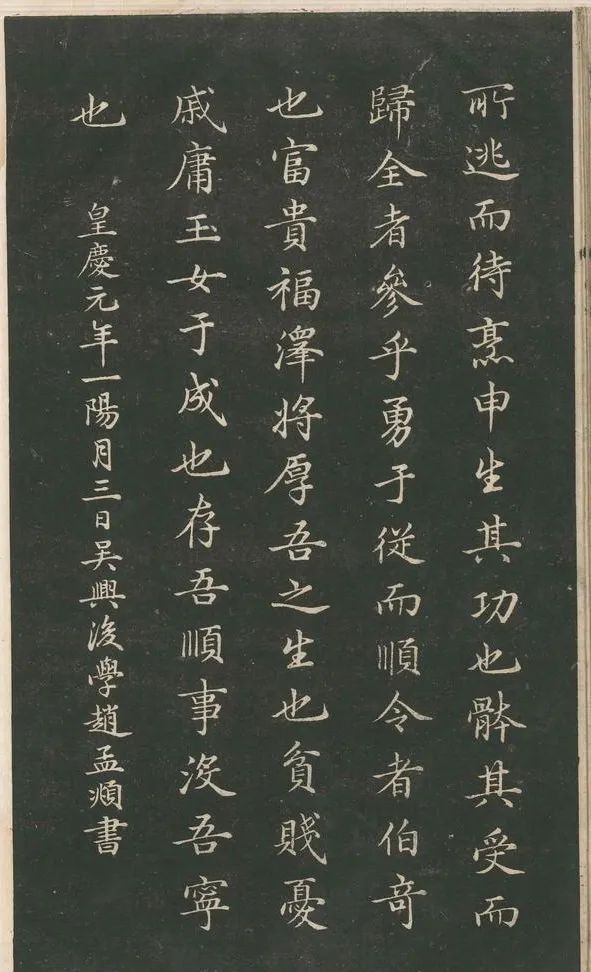 所逃而待烹申生其功也體其受而
歸全者參乎勇于從而順令者伯奇
也富貴福澤將厚吾之生也貧賤憂
戚庸玉女于成也存吾順事沒吾寧
也 皇慶元年一陽月三日吳興後學趙孟頫書